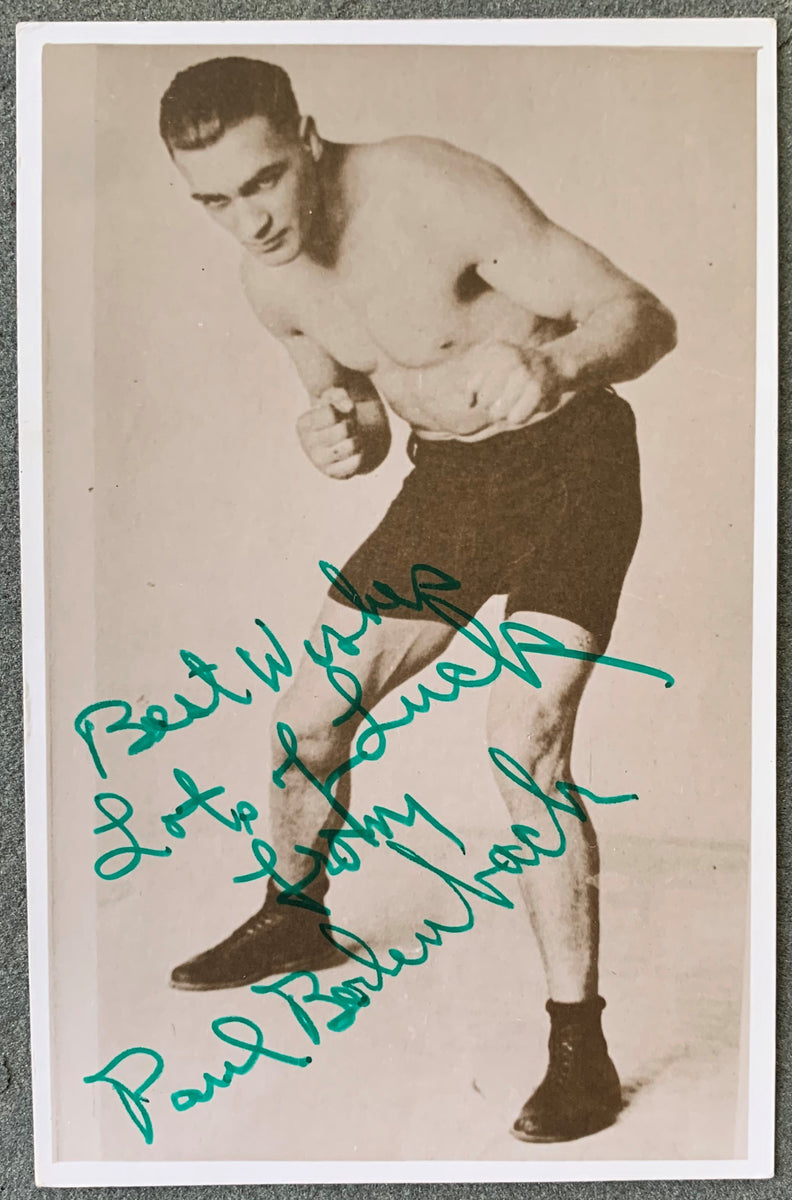 Best Wishes
Lots of Luck
From
Paul Berlenbach